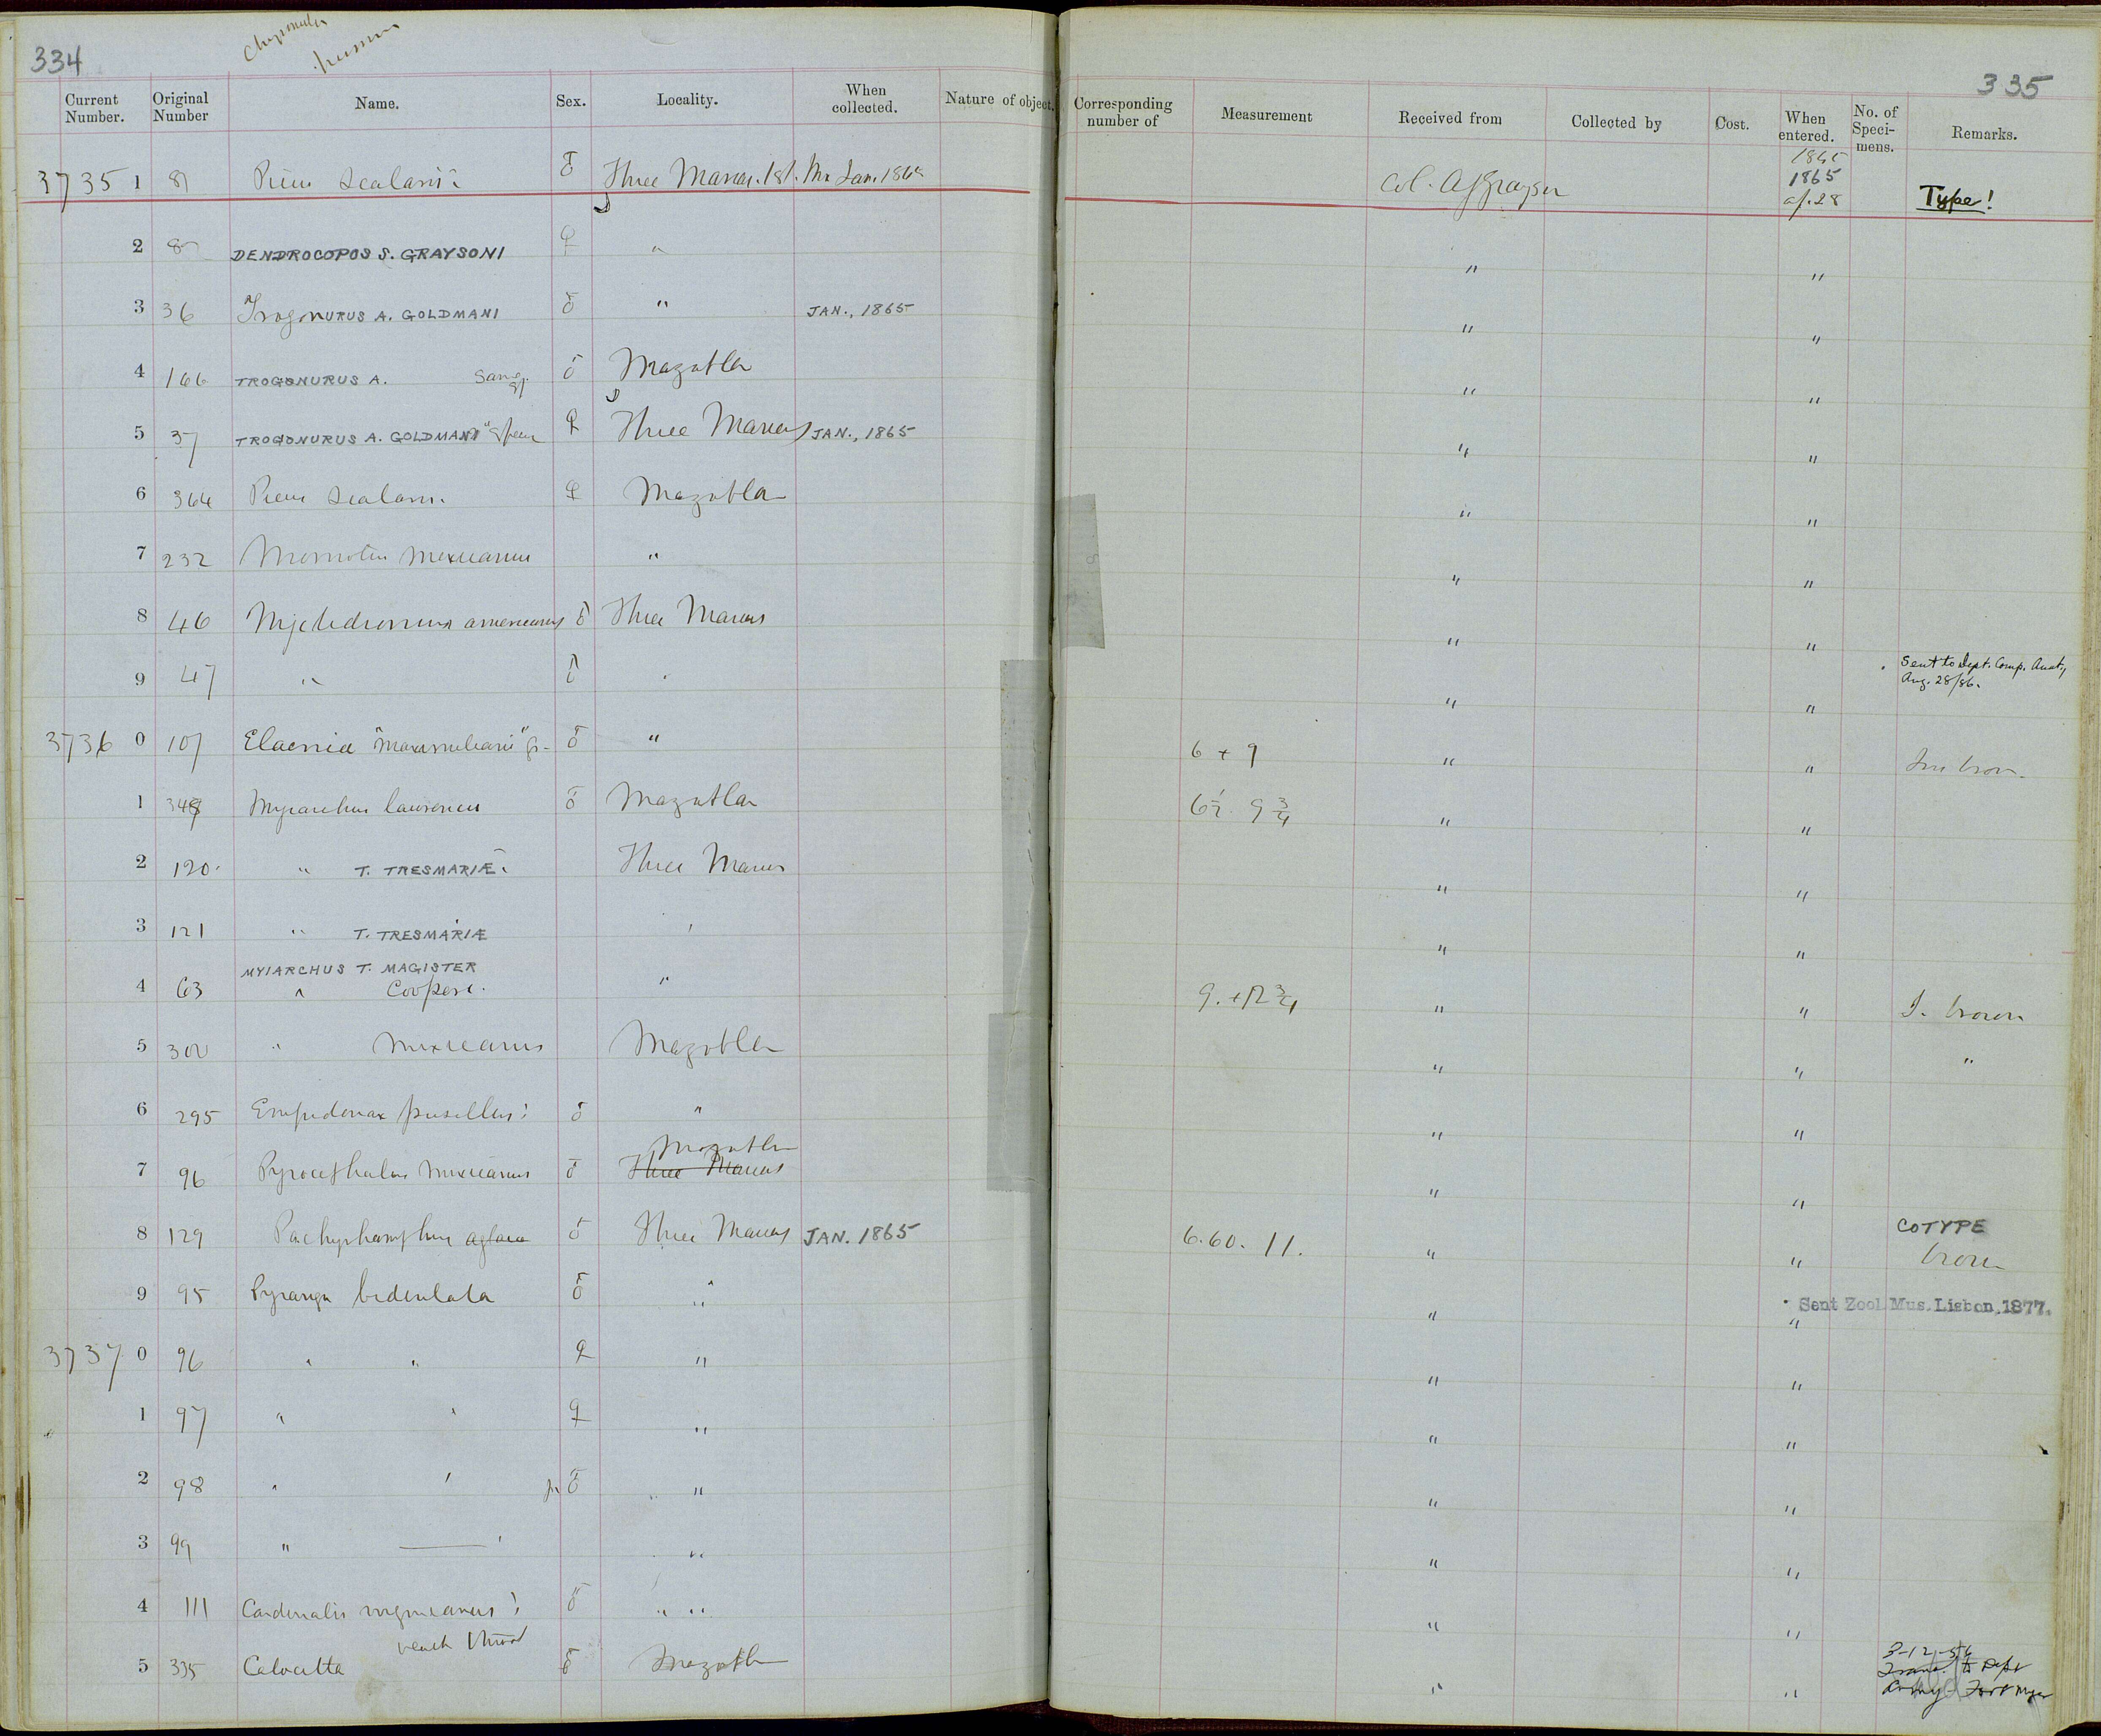 334
335
Current Number. Original Number Name. Sex. Locality. When collected. Nature of object. Corresponding number of Measurement Received from Collected by Cost. When entered. No. of Speci- mens. Remarks.
1865
3735 1 81 Picus scalaris ♂ Three Marias Isl. Mx Jan. 1865 Col. AJ Grayson 1865 ap. 28 Type!
2 DENDROCOPOS S. GRAYSONI ♀ " " "
3 36 TrogonURUS A. GOLDMANI ♂ " JAN., 1865 " "
4 166 TROGONURUS A. ♂ Mazatlan " "
5 37 TROGONURUS A. GOLDMANI ♀ Three Marias JAN., 1865 " "
6 364 Picus scalaris. ♀ Mazatlan " "
7 232 Momotus mexicanus " " "
8 46 Nyctidromus americanus ♂ Three Marias " "
9 47 " ♂ " " " Sent to Dept. Comp. Anat., Aug. 28/86.
3736 0 107 Elaenia ♂ " 6 + 9 " "
1 Myiarchus lawrencei ♂ Mazatlan 6½. 9¾ " "
2 120. " T. TRESMARIÆ. Three Marias " "
3 121 " T. TRESMARIÆ ' " "
MYIARCHUS T. MAGISTER
4 63 " Cooperi. " 9. + 12¾ " " I. brown
5 300 " mexicanus Mazatlan " " "
6 295 Empidonax pusillus ♂ " " "
Mazatlan
7 96 Pyrocephalus mexicanus ♂ Three Marias " "
COTYPE
8 129 Pachyrhamphus aglaiae ♂ Three Marias JAN. 1865 6.60. 11. " " brown
9 95 Pyranga bidentata ♂ " " " Sent Zool. Mus. Lisbon, 1877.
3737 0 96 " " ♀ " " "
1 97 " " ♀ " " "
2 98 " " ♂ " " "
3 99 " " " " "
4 111 Cardinalis virginianus ♂ " " " "
3-12-56
5 335 Calocitta ♂ Mazatlan " " Trans. to Dept Army - Fort Myer